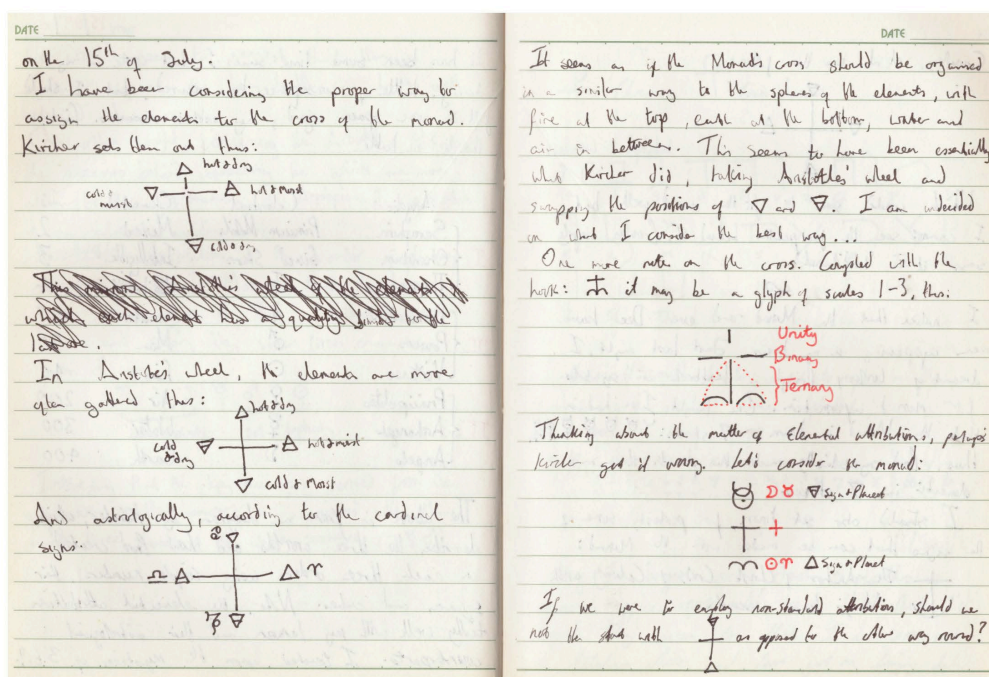 DATE
on the 15th of July.
I have been considering the proper way to
assign the elements to the cross of the monad.
Kircher sets them out thus:
🜂 hot & dry
cold & moist 🜄 🜁 hot & moist
🜃 cold & dry
This mirrors Aristotle's wheel of the elements,
which each element has a quality similar to the
In Aristotle's wheel, the elements are more
often gathered thus:
🜂 hot & dry
cold & dry 🜃 🜁 hot & moist
🜄 cold & moist
And astrologically, according to the cardinal
signs:
♋ 🜄
♎ 🜁 🜂 ♈
♑ 🜃
DATE
It seems as if the Monad's cross should be organised
in a similar way to the spheres of the elements, with
fire at the top, earth at the bottom, water and
air in between. This seems to have been essentially
what Kircher did, taking Aristotle's wheel and
swapping the positions of 🜄 and 🜃. I am undecided
on what I consider the best way...
One more note on the cross. Coupled with the
hook: it may be a glyph of scales 1-3, thus:
Unity
Binary
}Ternary
Thinking about the matter of Elemental attributions, perhaps
Kircher got it wrong. Let's consider the monad:
☽ ♉ 🜃 Sign & Planet
+ +
☉ ♈ 🜂 Sign & Planet
If we were to employ non-standard attributions, should we
not then start with 🜃 🜂 as opposed to the other way round?